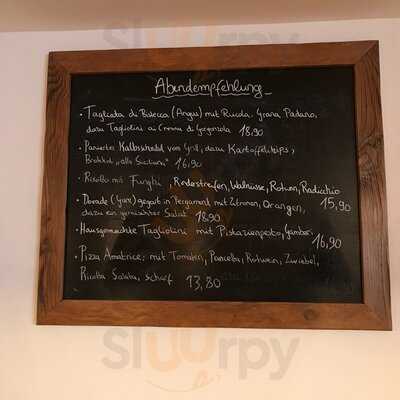 Abendempfehlung
• Tagliata di Bistecca (Angus) mit Rucola, Grana Padano,
dazu Tagliolini ai Crema di Gorgonzola 18,90
• Paniertes Kalbsschnitzel vom Grill, dazu Kartoffelchips,
Brokkoli "alla Siciliana" 16,90
• Risotto mit Funghi, Rinderstreifen, Walnüsse, Rotwein, Radicchio
15,90
• Dorade (Ganz) gegart in Pergament mit Zitronen, Orangen,
dazu ein gemischter Salat 18,90
• Hausgemachte Tagliolini mit Pistazienpesto, Gamberi
16,90
• Pizza Amatrice: mit Tomaten, Pancetta, Rotwein, Zwiebel,
Ricotta Salata, scharf 13,80
sluurpy
sluurpy